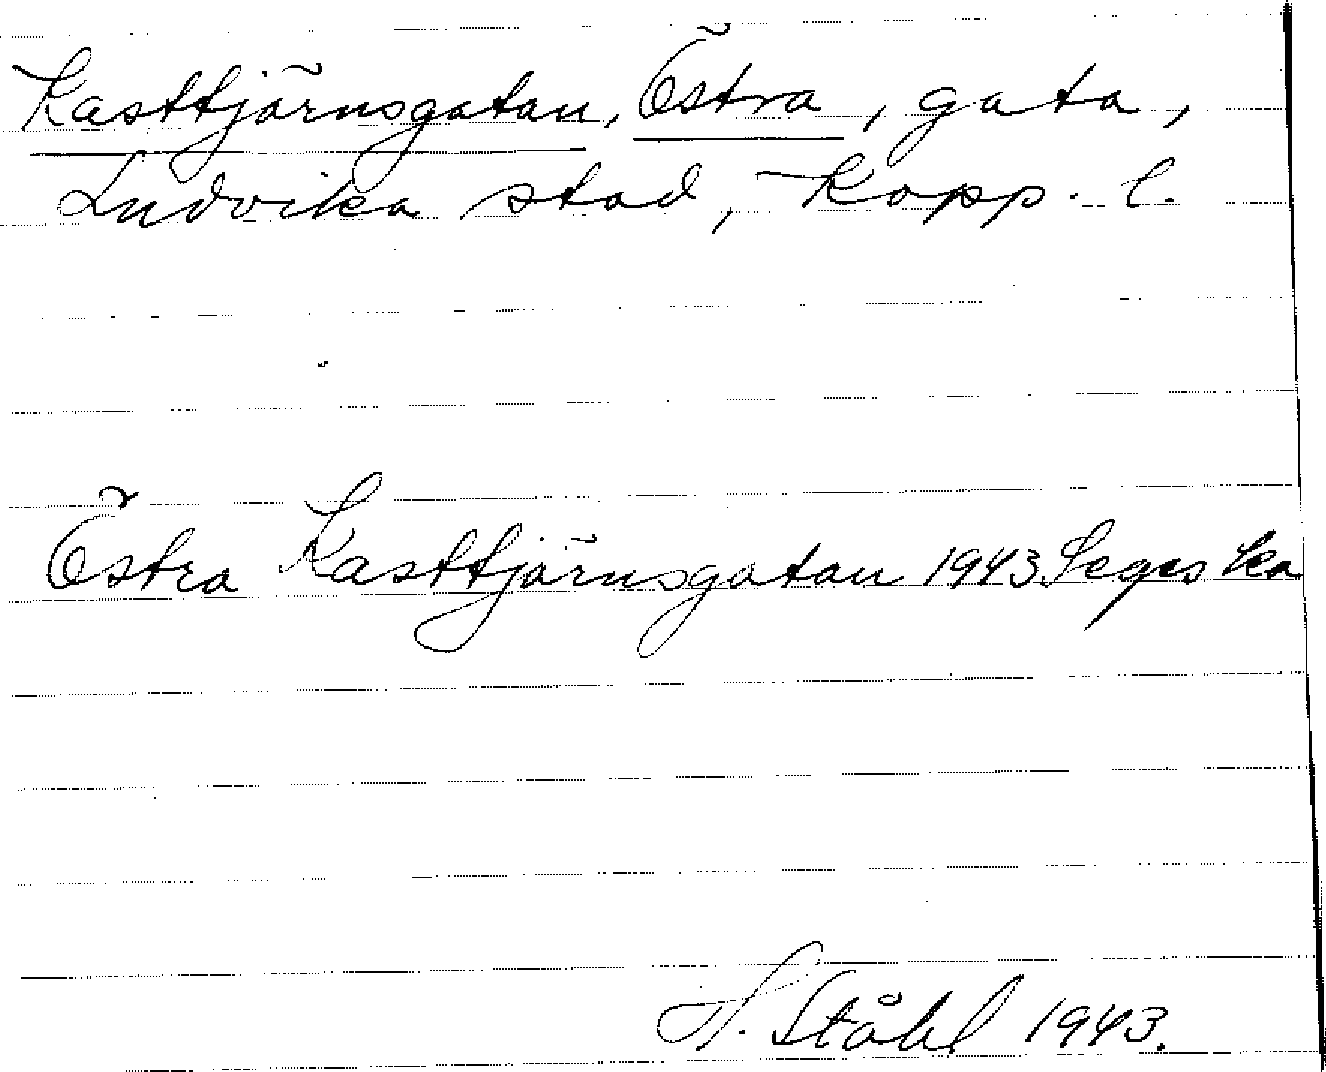 Kasttjärnsgatan, Östra, gata,
Ludvika stad, Kopp. l.
Östra Kasttjärnsgatan 1943 Seg eska
H. Ståhl 1943.